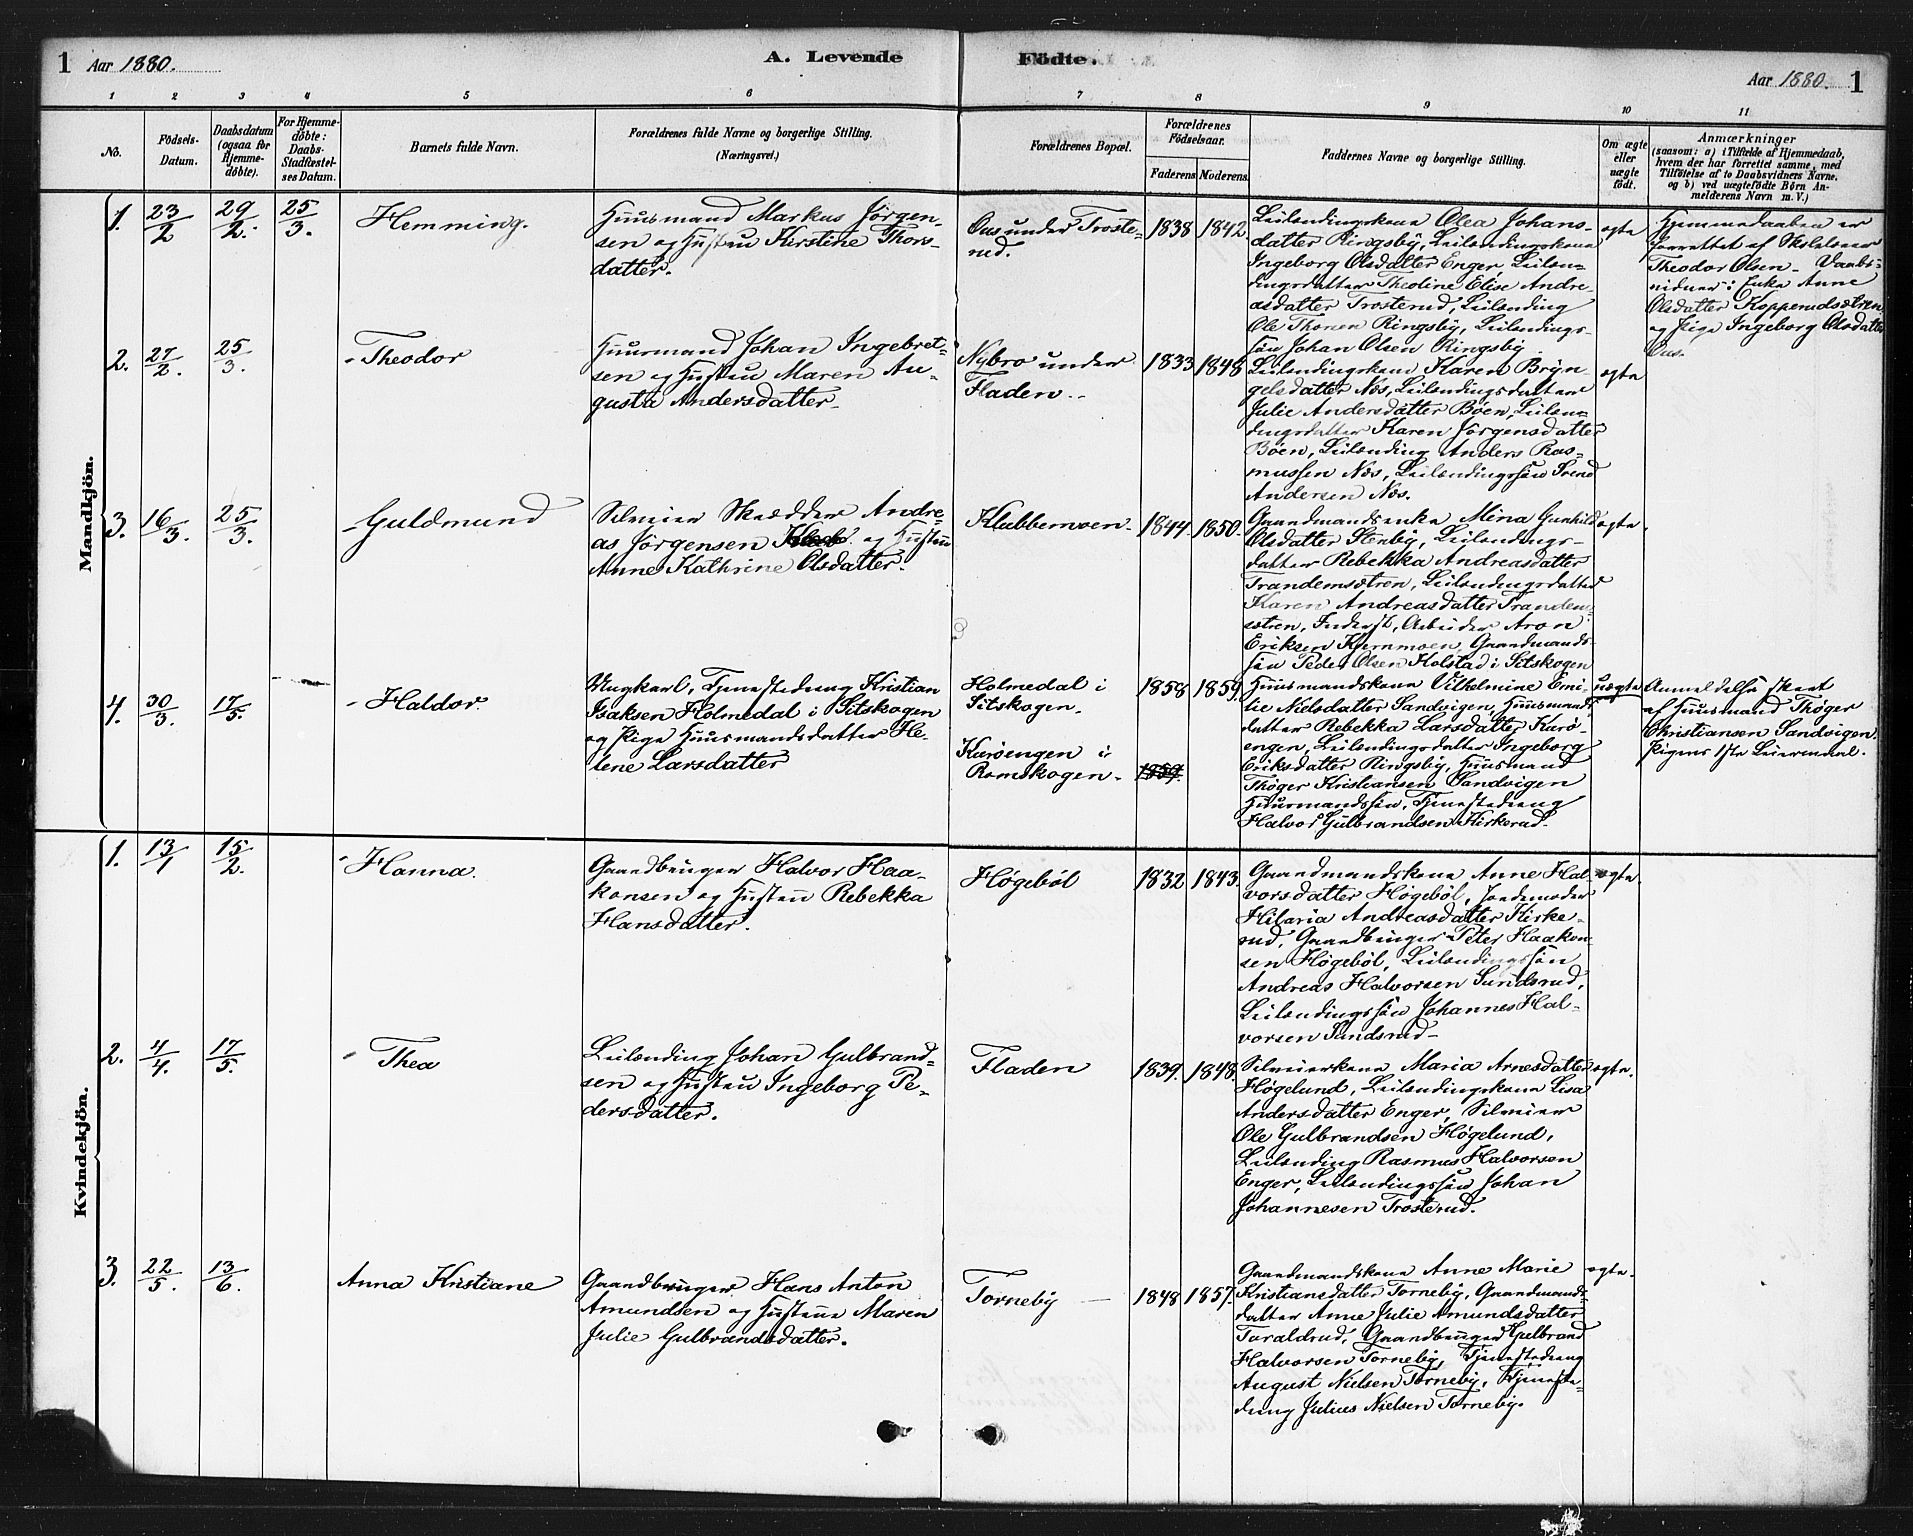 1 Aar 1880.
A. Levende Födte.
Aar 1880. 1
1 2 3 4 5 6 7 8 9 10 11
No.
Födsels-
Datum.
Daabsdatum
(ogsaa for
Hjemme-
döbte).
For Hjemme-
döbte:
Daabs-
Stadfæstel-
ses Datum.
Barnets fulde Navn.
Forældrenes fulde Navne og borgerlige Stilling.
(Næringsvei.)
Forældrenes Bopæl.
Forældrenes
Födselsaar.
Faderens Moderens
Faddernes Navne og borgerlige Stilling.
Om ægte
eller
uægte
födt.
Anmærkninger
(saasom: a) i Tilfælde af Hjemmedaab,
hvem der har forrettet samme, med
Tilföielse af to Daabsvidners Navne,
og b) ved uægtefödte Börn An-
melderens Navn m.V.)
Mandkjön.
1. 23/2 29/2. 25/3. Hemming.
Huusmand Markus Jørgen-
sen og Hustru Kirstine Thors-
datter.
Ous under Troste-
rud.
1838 1842
Leilændingskone Olea Johans-
datter Ringsby, Leilændingskone
Ingeborg Olsdatter Enger, Leilæn-
dingsdatter Theoline Elise Andre-
asdatter Trosterud, Leilænding
Ole Thoresen Ringsby, Leilændings-
søn Johan Olsen Ringsby.
ægte
Hjemmedaaben er
forrettet af Skolelærer
Theodor Olsen. Daabs-
vidner: Enke Anne
Olsdatter Kopperudsætren
og Pige Ingeborg Olsdatter
Ous.
2. 27/2. 25/3. Theodor
Huusmand Johan Ingebret-
sen og Hustru Maren Au-
gusta Andersdatter
Nybro under
Fladen.
1833 1848
Leilændingskone Karen Bryn-
gelsdatter Næs, Leilændingsdatter
Julie Andersdatter Bøen, Leilæn-
dingsdatter Karen Jørgensdatter
Bøen, Leilænding Anders Ras-
mussen Næs, Leilændingssøn Svend
Andersen Næs.
ægte
3. 16/3. 25/3. Guldmund
Selveier Skrædder Andre-
as Jørgensen og Hustru
Anne Kathrine Olsdatter.
Klubbemoen
1844. 1850.
Gaardmandsenke Mina Gunhild
Olsdatter Stenby, Leilændings-
datter Rebekka Andreasdatter
Trandemsætren, Leilændingsdatter
Karen Andreasdatter Trandem-
sætren, Inderst, Arbeider Aron
Eriksen Kjernmoen, Gaardmands-
søn Peder Olsen Holstad i Sitskogen
ægte.
4. 30/3. 17/5. Haldor
Ungkarl, Tjenestedreng Kristian
Isaksen Holmedal i Sitskogen
og Pige Huusmandsdatter He-
lene Larsdatter
Holmedal i
Sitskogen.
Kurøengen i
Romskogen.
1858 1859.
1859.
Huusmandskone Vilhelmine Emi-
lie Nielsdatter Sandvigen, Huusmands-
datter Rebekka Larsdatter Kurø-
engen, Leilændingsdatter Ingeborg
Eriksdatter Ringsby, Huusmand
Thøger Kristiansen Sandvigen
Huusmandssøn, Tjenestedreng
Halvor Gulbrandsen Kirkerud.
uægte
Anmeldelse skeet
af Huusmand Thøger
Christiansen Sandvigen.
Pigens 1ste Leiermaal.
Kvindekjön.
1. 13/1 15/2. Hanna.
Gaardbruger Halvor Haa-
konsen og Hustru Rebekka
Hansdatter.
Høgebøl
1832 1843.
Gaardmandskone Anne Hal-
vorsdatter Høgebøl, Jordemoder
Hilaria Andreasdatter Kirke-
rud, Gaardbruger Peter Haakon-
sen Høgebøl, Leilændingssøn
Andreas Halvorsen Sundsrud,
Leilændingssøn Johannes Hal-
vorsen Sundsrud
ægte.
2. 4/4. 17/5. Thea
Leilænding Johan Gulbrand-
sen og Hustru Ingeborg Pe-
dersdatter.
Fladen
1839. 1848.
Selveierkone Maria Arnesdatter
Høgelund, Leilændingskone Lisa
Andersdatter Enger, Selveier
Ole Gulbrandsen Høgelund,
Leilænding Rasmus Halvorsen
Enger, Leilændingssøn Johan
Johannesen Trosterud.
ægte.
3. 22/5. 13/6. Anna Kristiane
Gaardbruger Hans Anton
Amundsen og Hustrue Maren
Julie Gulbrandsdatter.
Torneby
1848 1857.
Gaardmandskone Anne Marie
Kristiansdatter Torneby, Gaardmands-
datter Anne Julie Amundsdatter
Taraldrud, Gaardbruger Gulbrand
Halvorsen Torneby, Tjenestedreng
August Nielsen Torneby, Tjeneste-
dreng Julius Nielsen Torneby.
ægte.